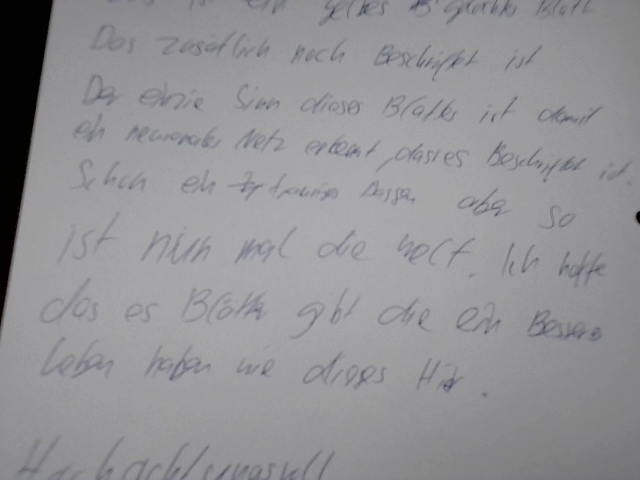 ist ein gelbes Blatt
Das zusätlich noch Beschriftet ist
Der einzie Sinn dieses Blattes ist damit
ein neuronales Netz erkennt, dass es Beschriftet ist.
Schon ein trauriges aber so
ist nun mal die welt. Ich hoffe
das es Blätter gibt die ein Besseres
leben haben wie dieses Hier.
Hochachtungsvoll